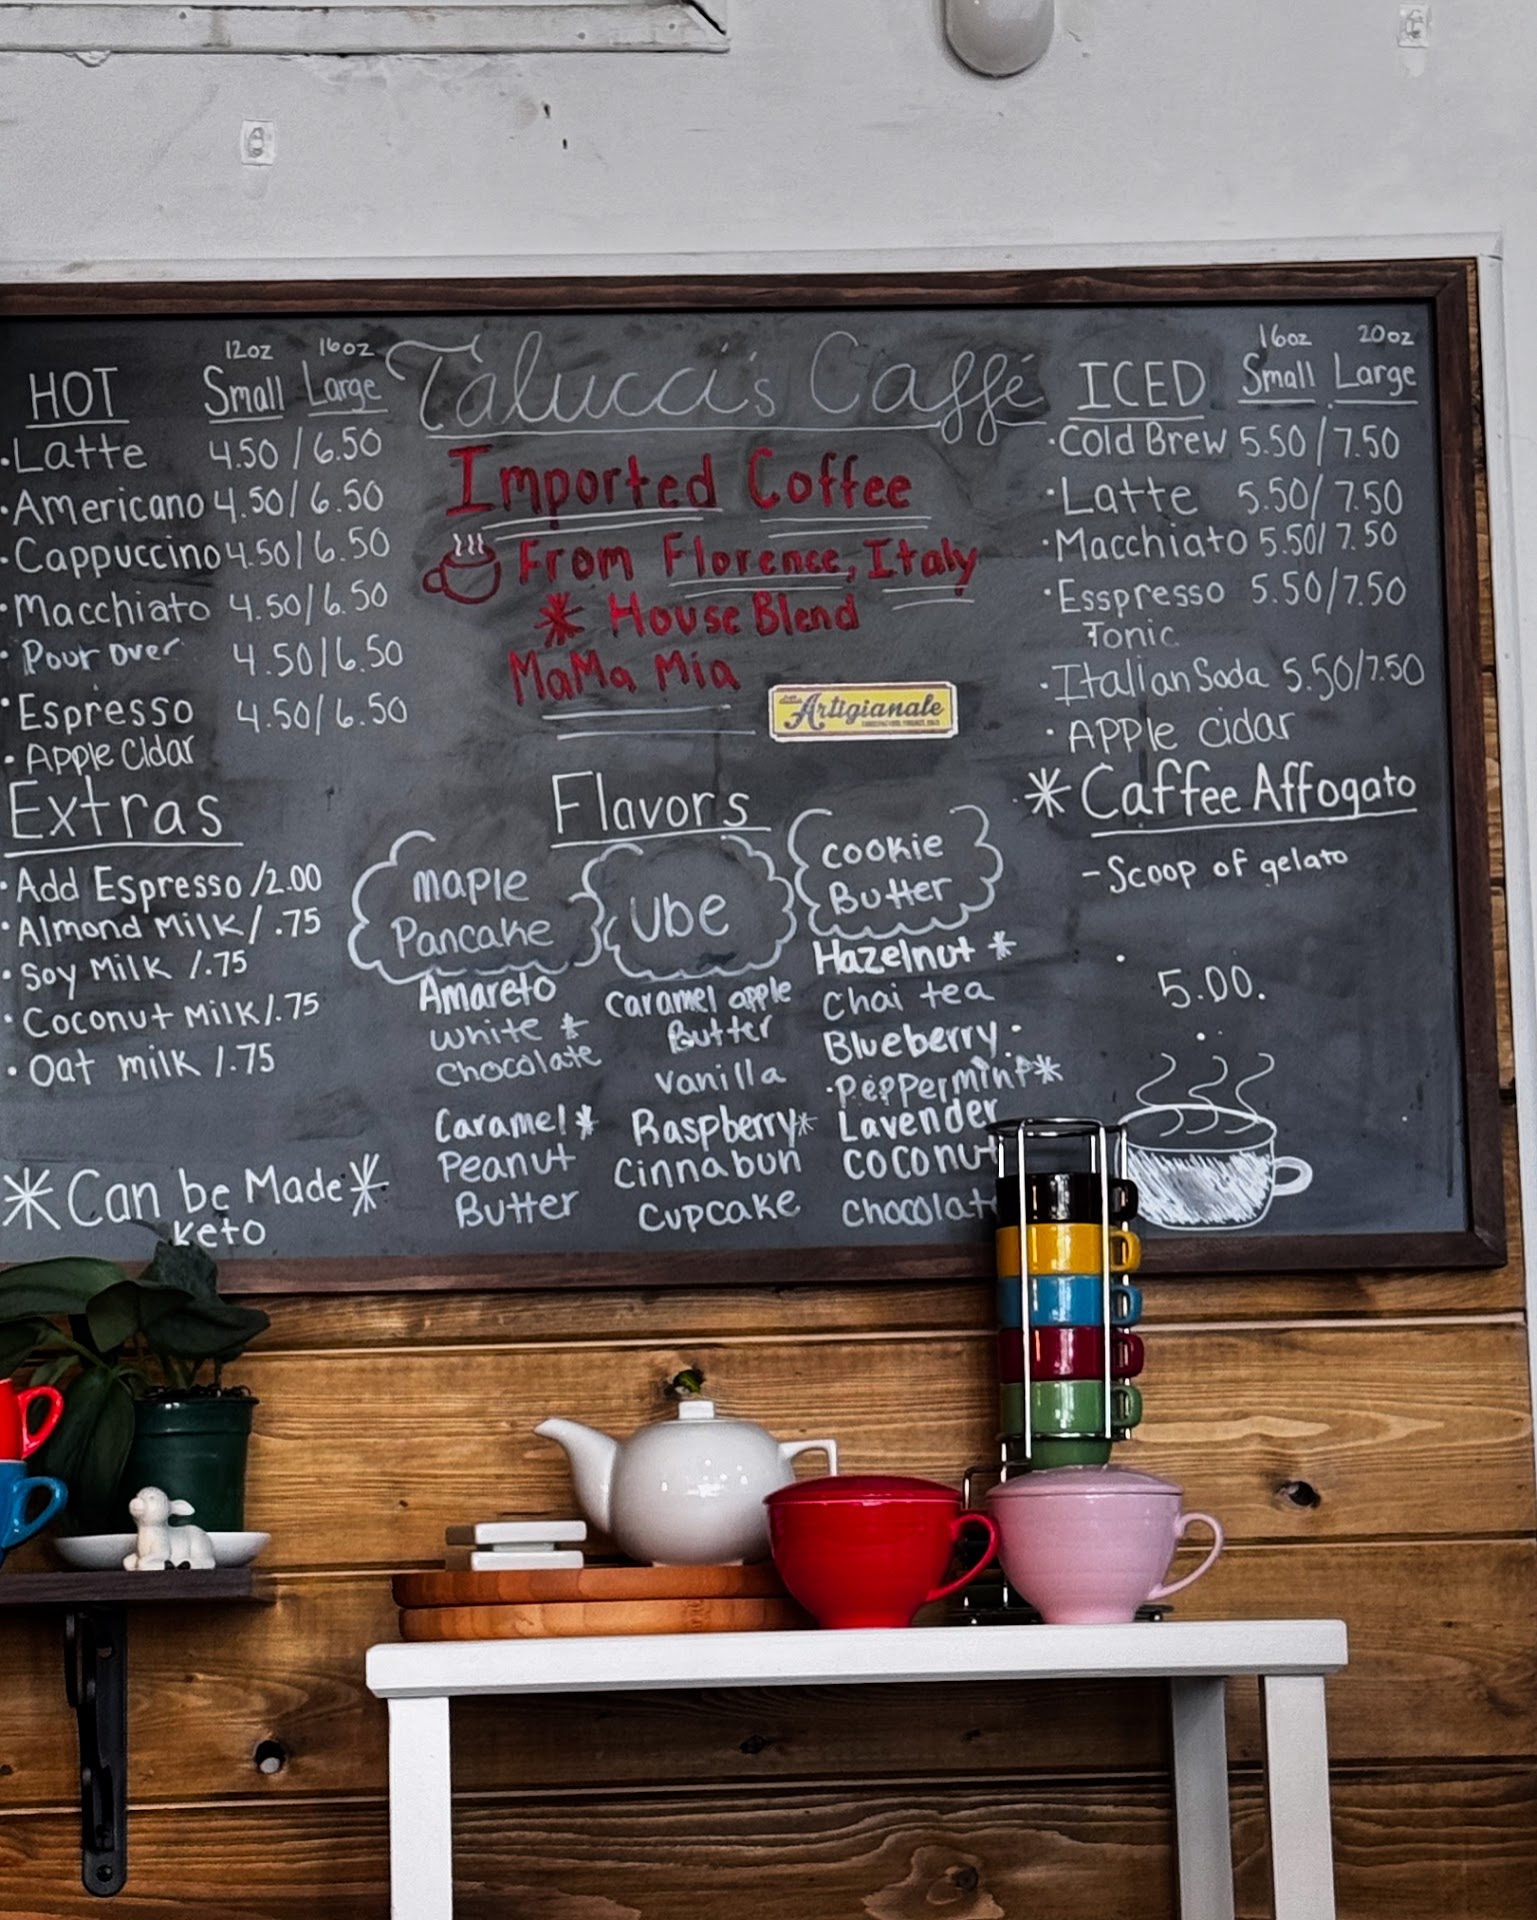 Talucci's Caffé
Imported Coffee
From Florence, Italy
* House Blend
MaMa Mia
Artigianale
12oz 16oz
HOT Small Large
·Latte 4.50/6.50
·Americano 4.50/6.50
·Cappuccino 4.50/6.50
·Macchiato 4.50/6.50
·Pour over 4.50/6.50
·Espresso 4.50/6.50
·Apple Cidar
Extras
·Add Espresso/2.00
·Almond Milk/.75
·Soy Milk /.75
·Coconut Milk/.75
·Oat milk /.75
*Can be Made*
Keto
Flavors
maple
Pancake
Ube
cookie
Butter
Amareto
white *
chocolate
Caramel*
Peanut
Butter
caramel apple
Butter
vanilla
Raspberry*
Cinnabun
Cupcake
Hazelnut *
Chai tea
Blueberry·
·Peppermint*
Lavender
Coconut
Chocolate
16oz 20oz
ICED Small Large
·Cold Brew 5.50/7.50
·Latte 5.50/7.50
·Macchiato 5.50/7.50
·Esspresso 5.50/7.50
Tonic
·Italian Soda 5.50/7.50
·Apple cidar
* Caffee Affogato
-Scoop of gelato
5.00.